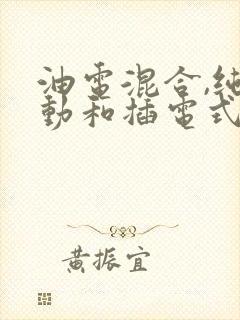 油電混合,純
動和插電式
黃振宜